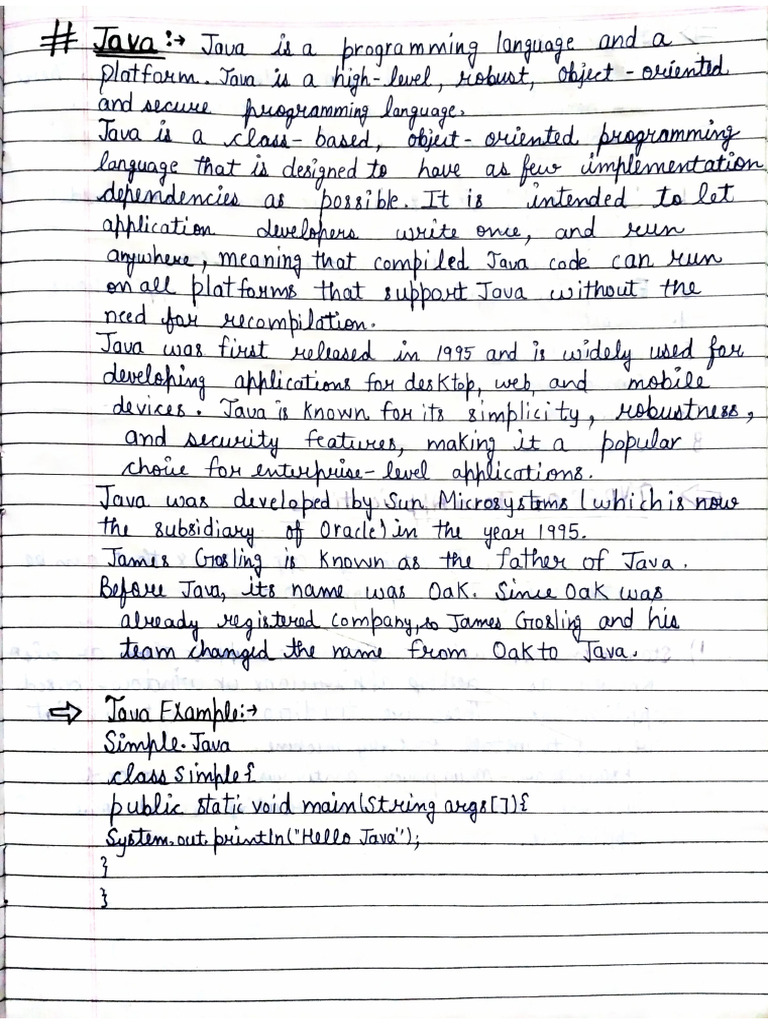 # Java :→ Java is a programming language and a
platform. Java is a high-level, robust, object-oriented
and secure programming language.
Java is a class-based, object-oriented programming
language that is designed to have as few implementation
dependencies as possible. It is intended to let
application developers write once, and run
anywhere, meaning that compiled Java code can run
on all platforms that support Java without the
need for recompilation.
Java was first released in 1995 and is widely used for
developing applications for desktop, web, and mobile
devices. Java is known for its simplicity, robustness,
and security features, making it a popular
choice for enterprise-level applications.
Java was developed by Sun Microsystems (which is now
the subsidiary of Oracle) in the year 1995.
James Gosling is known as the father of Java.
Before Java, its name was Oak. Since Oak was
already registered company, so James Gosling and his
team changed the name from Oak to Java.
⇒ Java Example:→
Simple.Java
class Simple{
public static void main(String args[]){
System.out.println("Hello Java");
}
}